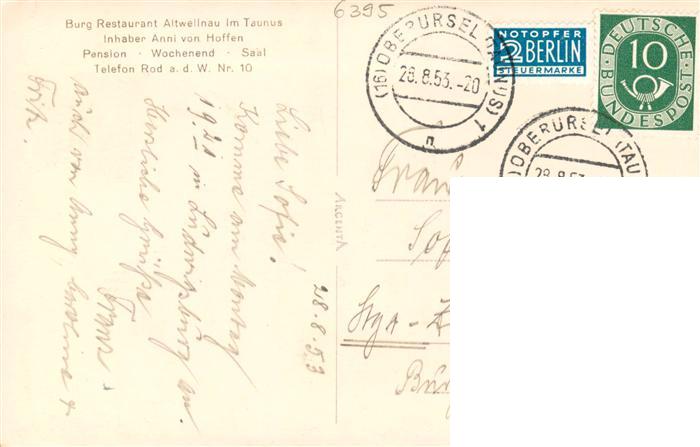 Burg Restaurant Altwellnau im Taunus
Inhaber Anni von Hoffen
Pension · Wochenend · Saal
Telefon Rod a. d. W. Nr. 10
6395
(16) OBERURSEL (TAUNUS) 1
28.8.53.-20
n
NOTOPFER
2 BERLIN
STEUERMARKE
DEUTSCHE
10
BUNDESPOST
OBERURSEL (TAU
28.8.53
28.8.53
Liebe Sofie!
Komme am Montag
19.21 in Ludwigsburg an.
Herzliche Grüße
auch von
ARGENTA
Frau
Sop
Stga-Z